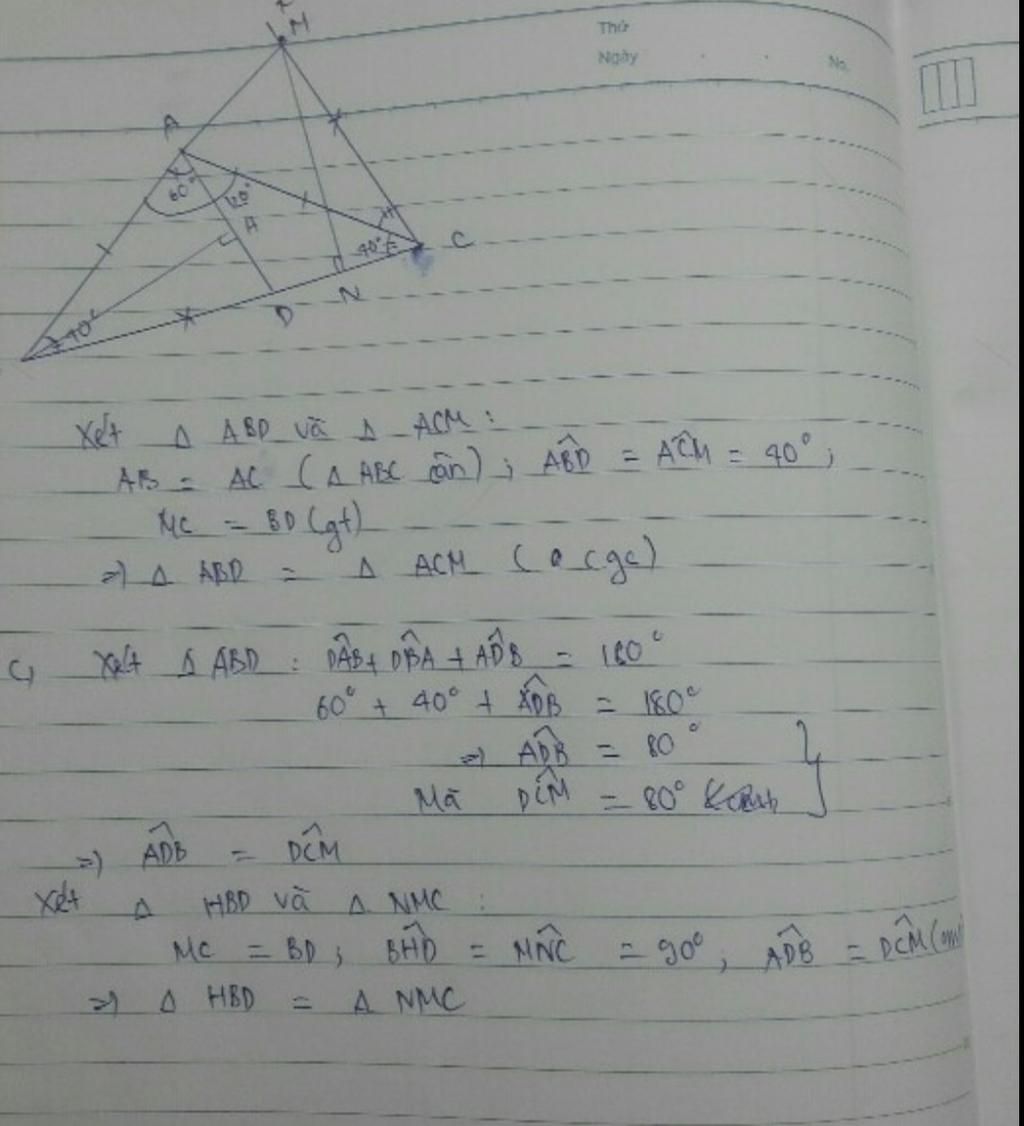 M
Thứ
Ngày
No.
A
60°
120°
H
40°
C
N
D
40°
Xét Δ ABD và Δ ACM :
AB = AC (Δ ABC cân) ; ABD̂ = ACM̂ = 40° ;
MC = BD (gt)
=) Δ ABD = Δ ACM ( cgc)
C, Xét Δ ABD : DÂB + DB̂A + AD̂B = 180°
60° + 40° + AD̂B = 180°
=) AD̂B = 80°
Mà DĈM = 80°
=) AD̂B = DĈM
Xét Δ HBD và Δ NMC :
MC = BD ; BĤD = MN̂C = 90° ; AD̂B = DĈM
=) Δ HBD = Δ NMC